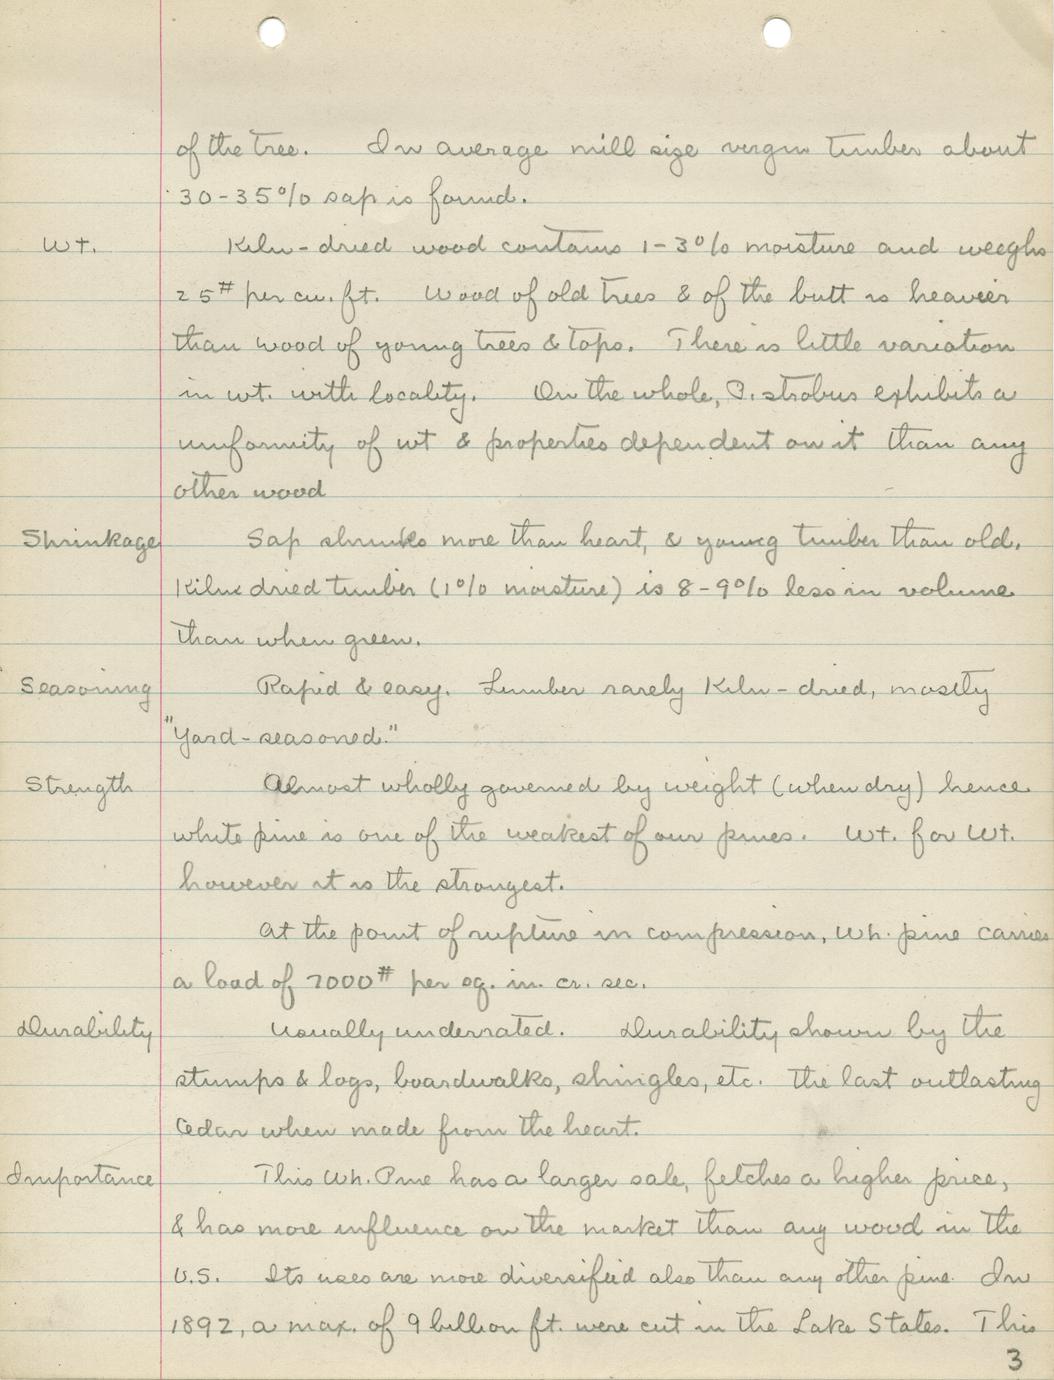 of the tree. In average mill size virgin timber about
30-35% sap is found.
Wt. Kiln-dried wood contains 1-3% moisture and weeghs
25# per cu. ft. Wood of old trees & of the butt is heavier
than wood of young trees & tops. There is little variation
in wt. with locality. On the whole, P. strobus exhibits a
uniformity of wt & properties dependent on it than any
other wood
Shrinkage Sap shrinks more than heart, & young timber than old.
Kiln dried timber (1% moisture) is 8-9% less in volume
than when green.
Seasoning Rapid & easy. Lumber rarely Kiln-dried, mostly
"Yard-seasoned."
Strength Almost wholly governed by weight (when dry) hence
white pine is one of the weakest of our pines. Wt. for Wt.
however it is the strongest.
At the point of rupture in compression, Wh. pine carries
a load of 7000# per sq. in. cr. sec.
Durability Usually underrated. Durability shown by the
stumps & logs, boardwalks, shingles, etc. the last outlasting
Cedar when made from the heart.
Importance This Wh. Pine has a larger sale, fetches a higher price,
& has more influence on the market than any wood in the
U.S. Its uses are more diversified also than any other pine. In
1892, a max. of 9 billion ft. were cut in the Lake States. This
3